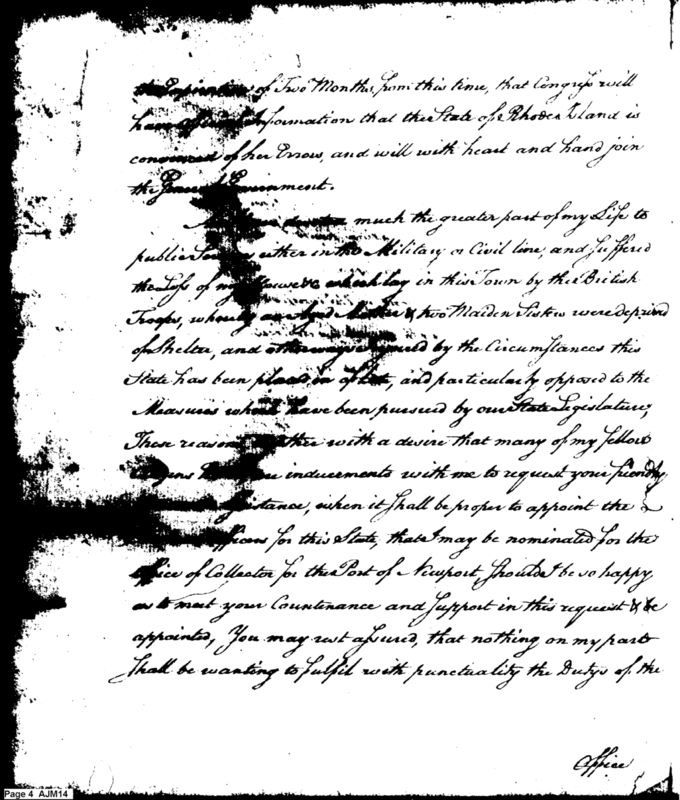 the Expiration of Two Months, from this time, that Congress will
have Official Information that this State of Rhode Island is
convinced of her Errors, and will with heart and hand join
the General Government.
much the greater part of my Life to
public Service, either in the Military or Civil line, and Suffered
the Loss of my House &c which lay in this Town by the British
Troops, whereby an Aged Mother & two Maiden Sisters were deprived
of Shelter, and otherways Injured by the Circumstances this
State has been placed in of late, and particularly opposed to the
Measures which have been pursued by our State Legislature,
These reasons together with a desire that many of my fellow
Citizens have inducements with me to request your friendly
Assistance, when it Shall be proper to appoint the
Officers for this State, that I may be nominated for the
Office of Collector for the Port of Newport, Should I be so happy
as to meet your Countenance and Support in this request & be
appointed, You may rest assured, that nothing on my part
Shall be wanting to fulfil with punctuality the Dutys of the
Office
Page 4 AJM14